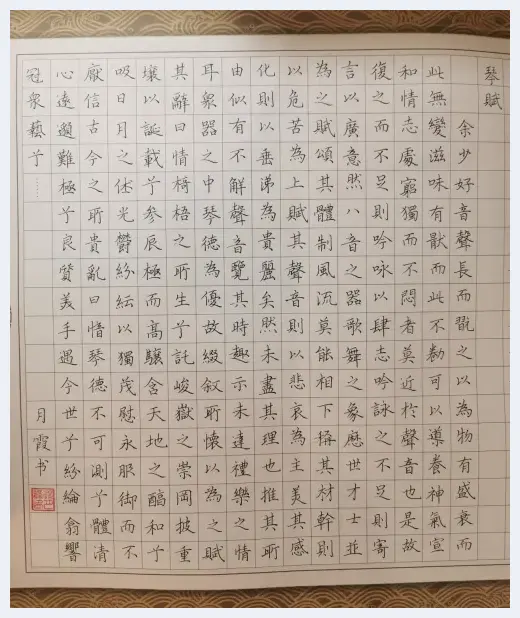 琴賦
余少好音聲長而翫之以為物有盛衰而
此無變滋味有猒而此不勌可以導養神氣宣
和情志處窮獨而不悶者莫近於聲音也是故
復之而不足則吟咏以肆志吟詠之不足則寄
言以廣意然八音之器歌舞之象歷世才士並
為之賦頌其體制風流莫能相下稱其材幹則
以危苦為上賦其聲音則以悲哀為主美其感
化則以垂涕為貴麗矣然未盡其理也推其所
由似有不解聲音覽其時趣示未達禮樂之情
耳衆器之中琴德為優故綴叙所懷以為之賦
其辭曰情椅梧之所生兮託峻嶽之崇岡披重
壤以誕載兮參辰極而高驤含天地之醇和兮
吸日月之休光鬱紛紜以獨茂慰永服御而不
厭信古今之所貴亂曰愔琴德不可測兮體清
心遠邈難極兮良質美手遇今世兮紛綸翕響
冠衆藝兮……
月霞书